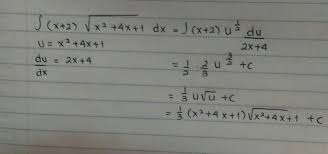 ∫(x+2) √(x²+4x+1) dx = ∫(x+2) u^(1/2) du/(2x+4)
u = x²+4x+1
du/dx = 2x+4
= 1/2 · 2/3 u^(3/2) + C
= 1/3 u√u + C
= 1/3 (x²+4x+1)√(x²+4x+1) + C